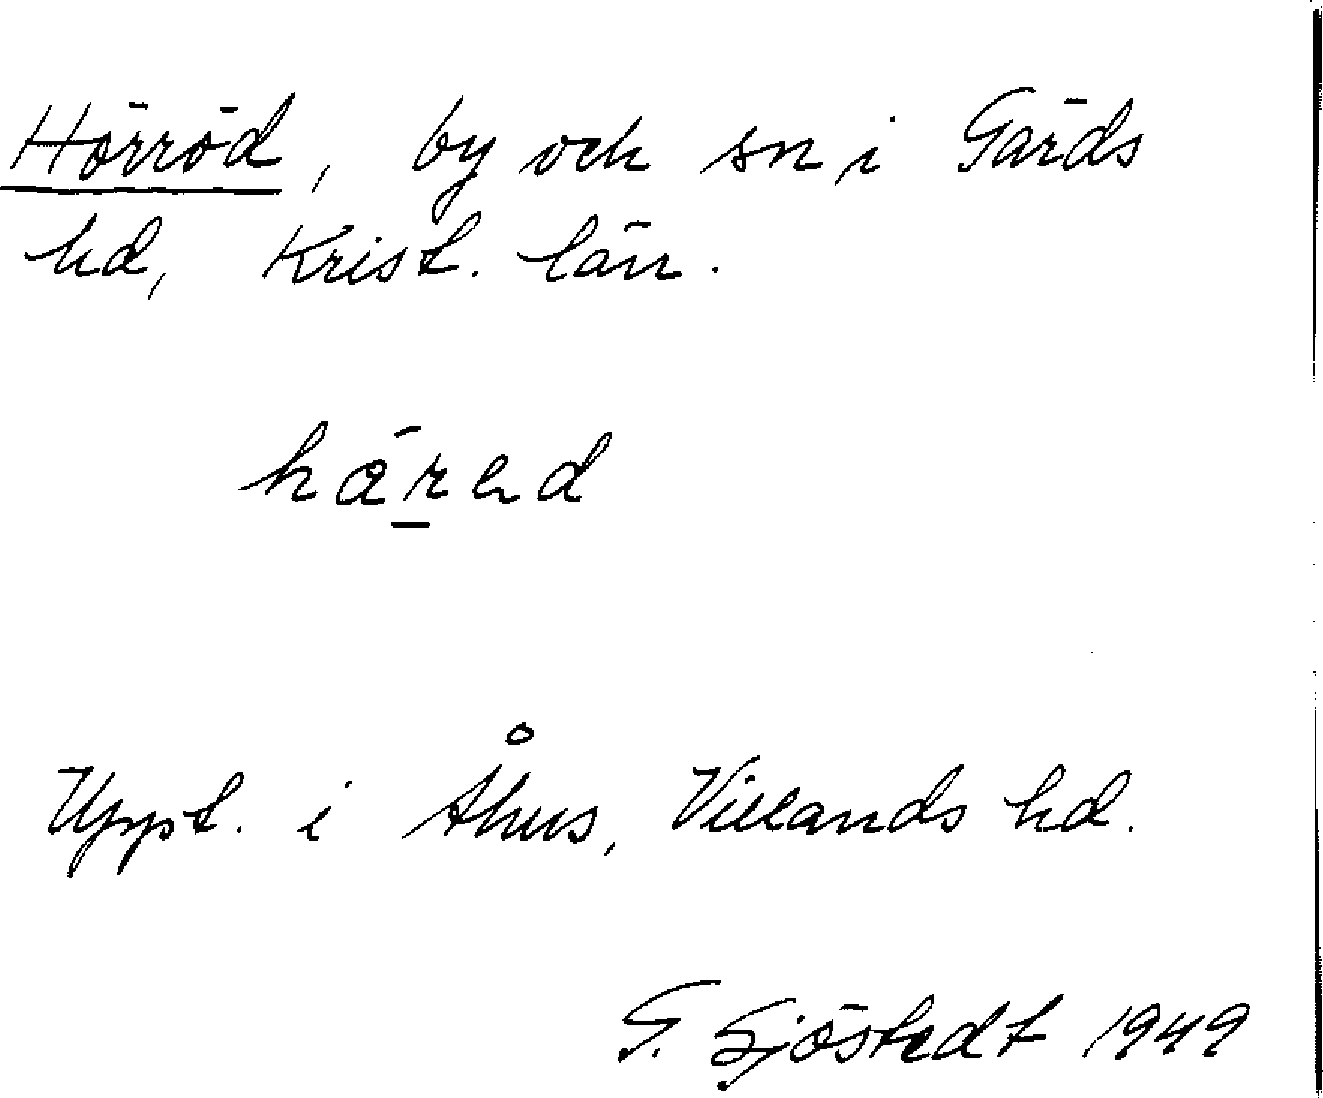 Hörröd, by och sn i Gärds
hd, Krist. län.
häred
Uppt. i Åhus, Villands hd.
G. Sjöstedt 1949